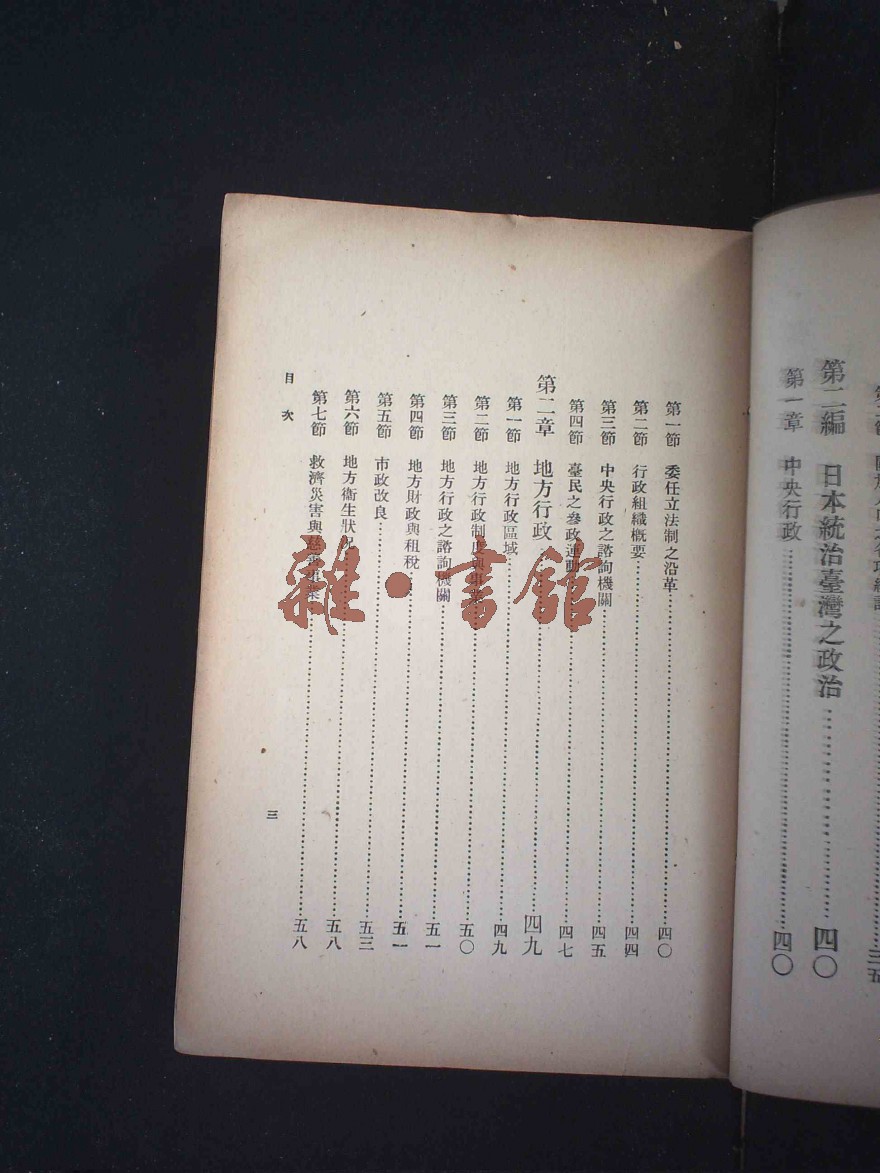 第二編 日本統治臺灣之政治……四〇
第一章 中央行政……四〇
第一節 委任立法制之沿革……四〇
第二節 行政組織概要……四四
第三節 中央行政之諮詢機關……四五
第四節 臺民之參政運動……四七
第二章 地方行政……四九
第一節 地方行政區域……四九
第二節 地方行政制度與事業……五〇
第三節 地方行政之諮詢機關……五一
第四節 地方財政與租稅……五一
第五節 市政改良……五三
第六節 地方衞生狀況……五八
第七節 救濟災害與慈善事業……五八
目次
三
雜·書館